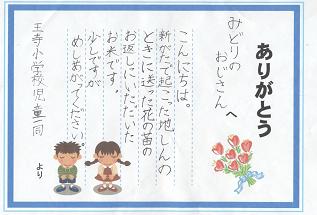 ありがとう
みどりの
おじさんへ
こんにちは。
新がたで起こった地しんの
ときに送った花の苗の
お返しにいただいた
お米です。
少しですが
めしあがってください
王寺小学校児童一同
より